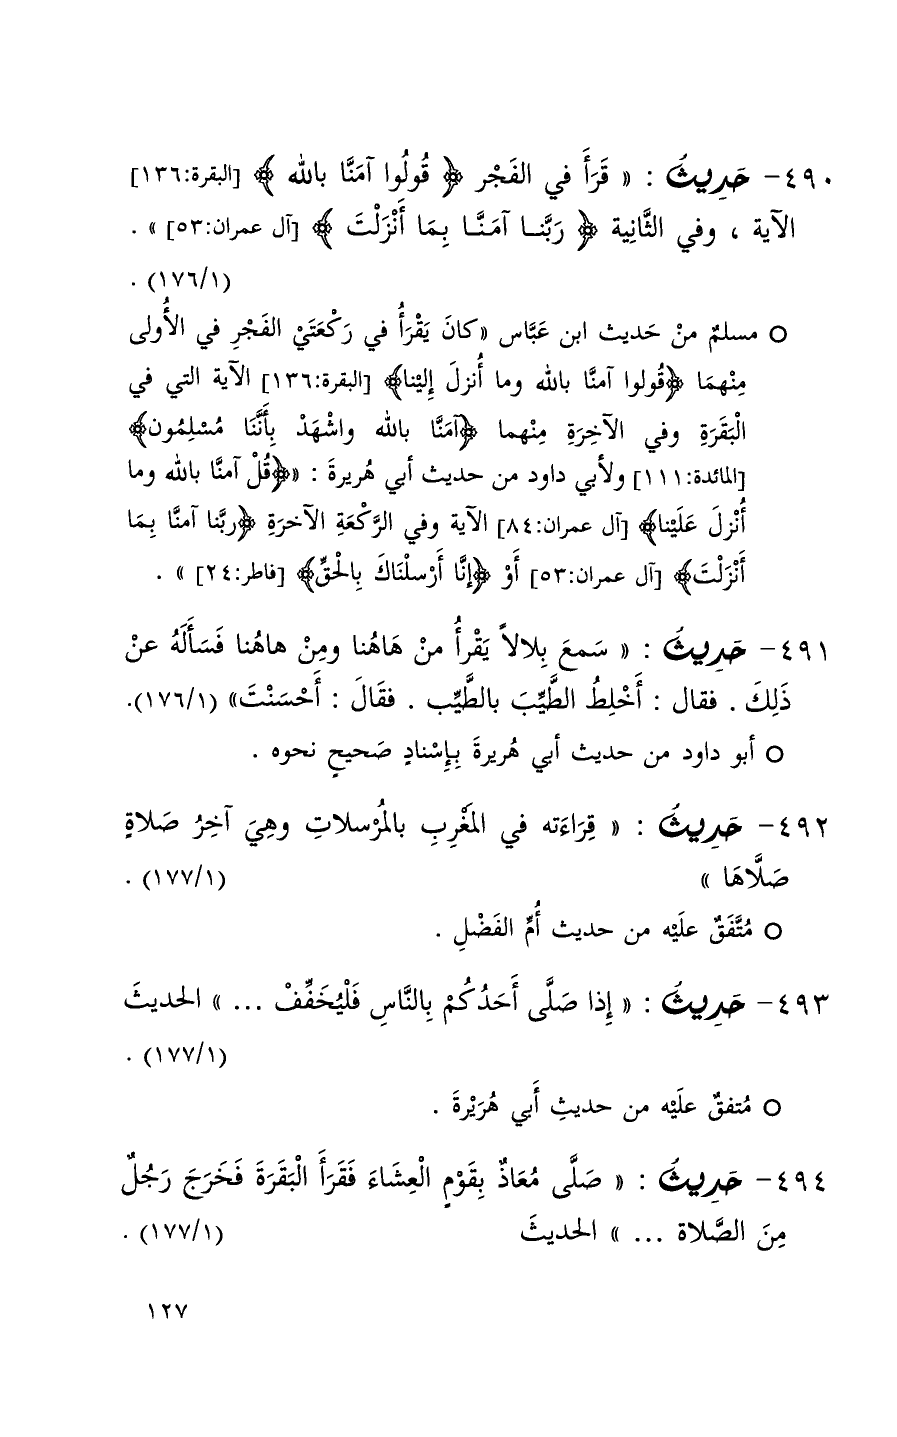 ٤٩٠- حَدِيثُ : « قَرَأَ في الفَجْر ﴿ قُولُوا آمَنَّا بالله ﴾ [البقرة:١٣٦]
الآية ، وفي الثَّانِية ﴿ رَبَّنــا آمَنَّــا بِمَا أَنْزَلْتَ ﴾ [آل عمران:٥٣] » .
(١٧٦/١) .
○ مسلمٌ منْ حَديث ابن عَبَّاس «كانَ يَقْرَأُ في رَكْعَتَيْ الفَجْرِ في الأُولى
مِنْهمَا ﴿قُولوا آمنَّا بالله وما أُنزلَ إِليْنا﴾ [البقرة:١٣٦] الآية التي في
الْبَقَرَةِ وفي الآخِرَةِ مِنْهما ﴿آمَنَّا بالله واشْهَدْ بِأَنَّنَا مُسْلِمُون﴾
[المائدة:١١١] ولأبي داود من حديث أبي هُريرةَ : «﴿قُلْ آمنَّا بالله وما
أُنْزلَ عَلَيْنا﴾ [آل عمران:٨٤] الآية وفي الرَّكْعَةِ الآخرَةِ ﴿ربَّنا آمنَّا بِمَا
أَنْزَلْتَ﴾ [آل عمران:٥٣] أَوْ ﴿إنَّا أَرْسلْنَاكَ بِالْحَقِّ﴾ [فاطر:٢٤] » .
٤٩١- حَدِيثُ : « سَمعَ بِلالاً يَقْرأُ منْ هَاهُنا ومِنْ هاهُنا فَسَأَلَهُ عنْ
ذَلِكَ . فقال : أَخْلِطُ الطَّيِّبَ بالطَّيِّب . فقَالَ : أَحْسَنْتَ» (١٧٦/١).
○ أبو داود من حديث أبي هُريرةَ بِإِسْنادٍ صَحيحٍ نحوه .
٤٩٢- حَدِيثُ : « قِرَاءَته في المَغْرِبِ بالمُرْسلاتِ وهِيَ آخِرُ صَلاةٍ
صَلَّاهَا » (١٧٧/١) .
○ مُتَّفَقٌ علَيْه من حديث أُمِّ الفَضْلِ .
٤٩٣- حَدِيثُ : « إِذا صَلَّى أَحَدُكُمْ بِالنَّاسِ فَلْيُخَفِّفْ ... » الحديثَ
(١٧٧/١) .
○ مُتفقٌ علَيْه من حديثِ أَبي هُرَيْرةَ .
٤٩٤- حَدِيثُ : « صَلَّى مُعَاذٌ بِقَوْمٍ الْعِشَاءَ فَقَرَأَ الْبَقَرَةَ فَخَرَجَ رَجُلٌ
مِنَ الصَّلاة ... » الحديثَ (١٧٧/١) .
١٢٧